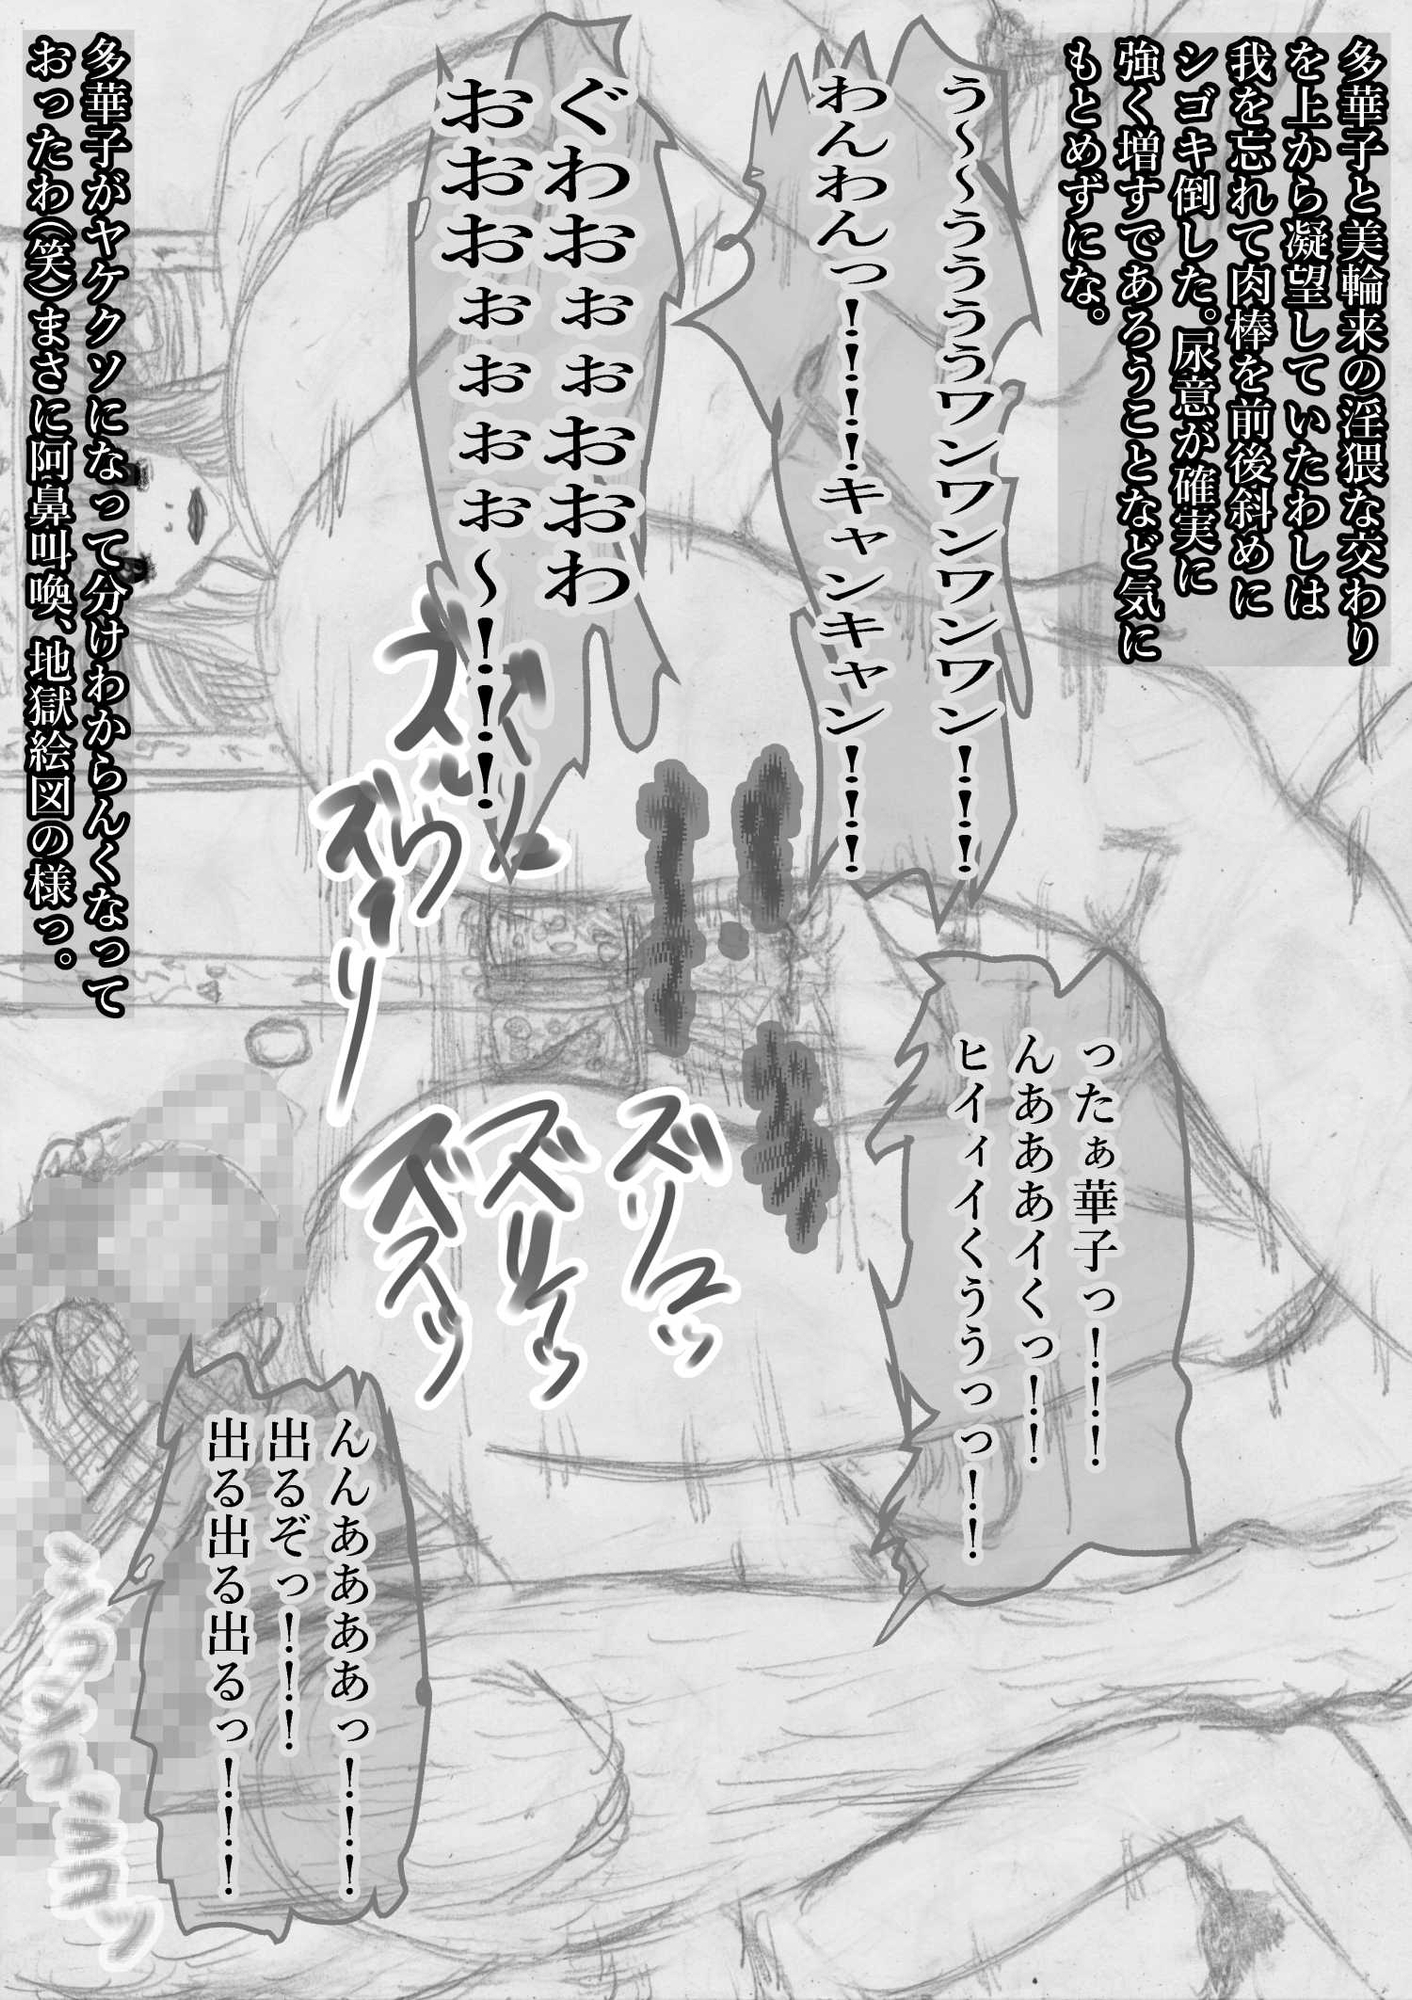 多華子と美輪来の淫猥な交わり
を上から凝望していたわしは
我を忘れて肉棒を前後斜めに
シゴキ倒した。尿意が確実に
強く増すであろうことなど気に
もとめずにな。
う～～うううワンワンワンワン！！！
わんわんっ！！！！キャンキャン！！！
ぐわおぉぉおおわ
おおおぉぉぉぉ～！！！！
ったぁ華子っ！！！
んあああイくっ！！
ヒイィイくううっっ！！
ズリュッ
ズリィッ
ズズッ
ズリィーリ
んんあああああっ！！！
出るぞっ！！！
出る出る出るっ！！！
多華子がヤケクソになって分けわからんくなって
おったわ（笑）まさに阿鼻叫喚、地獄絵図の様っ。